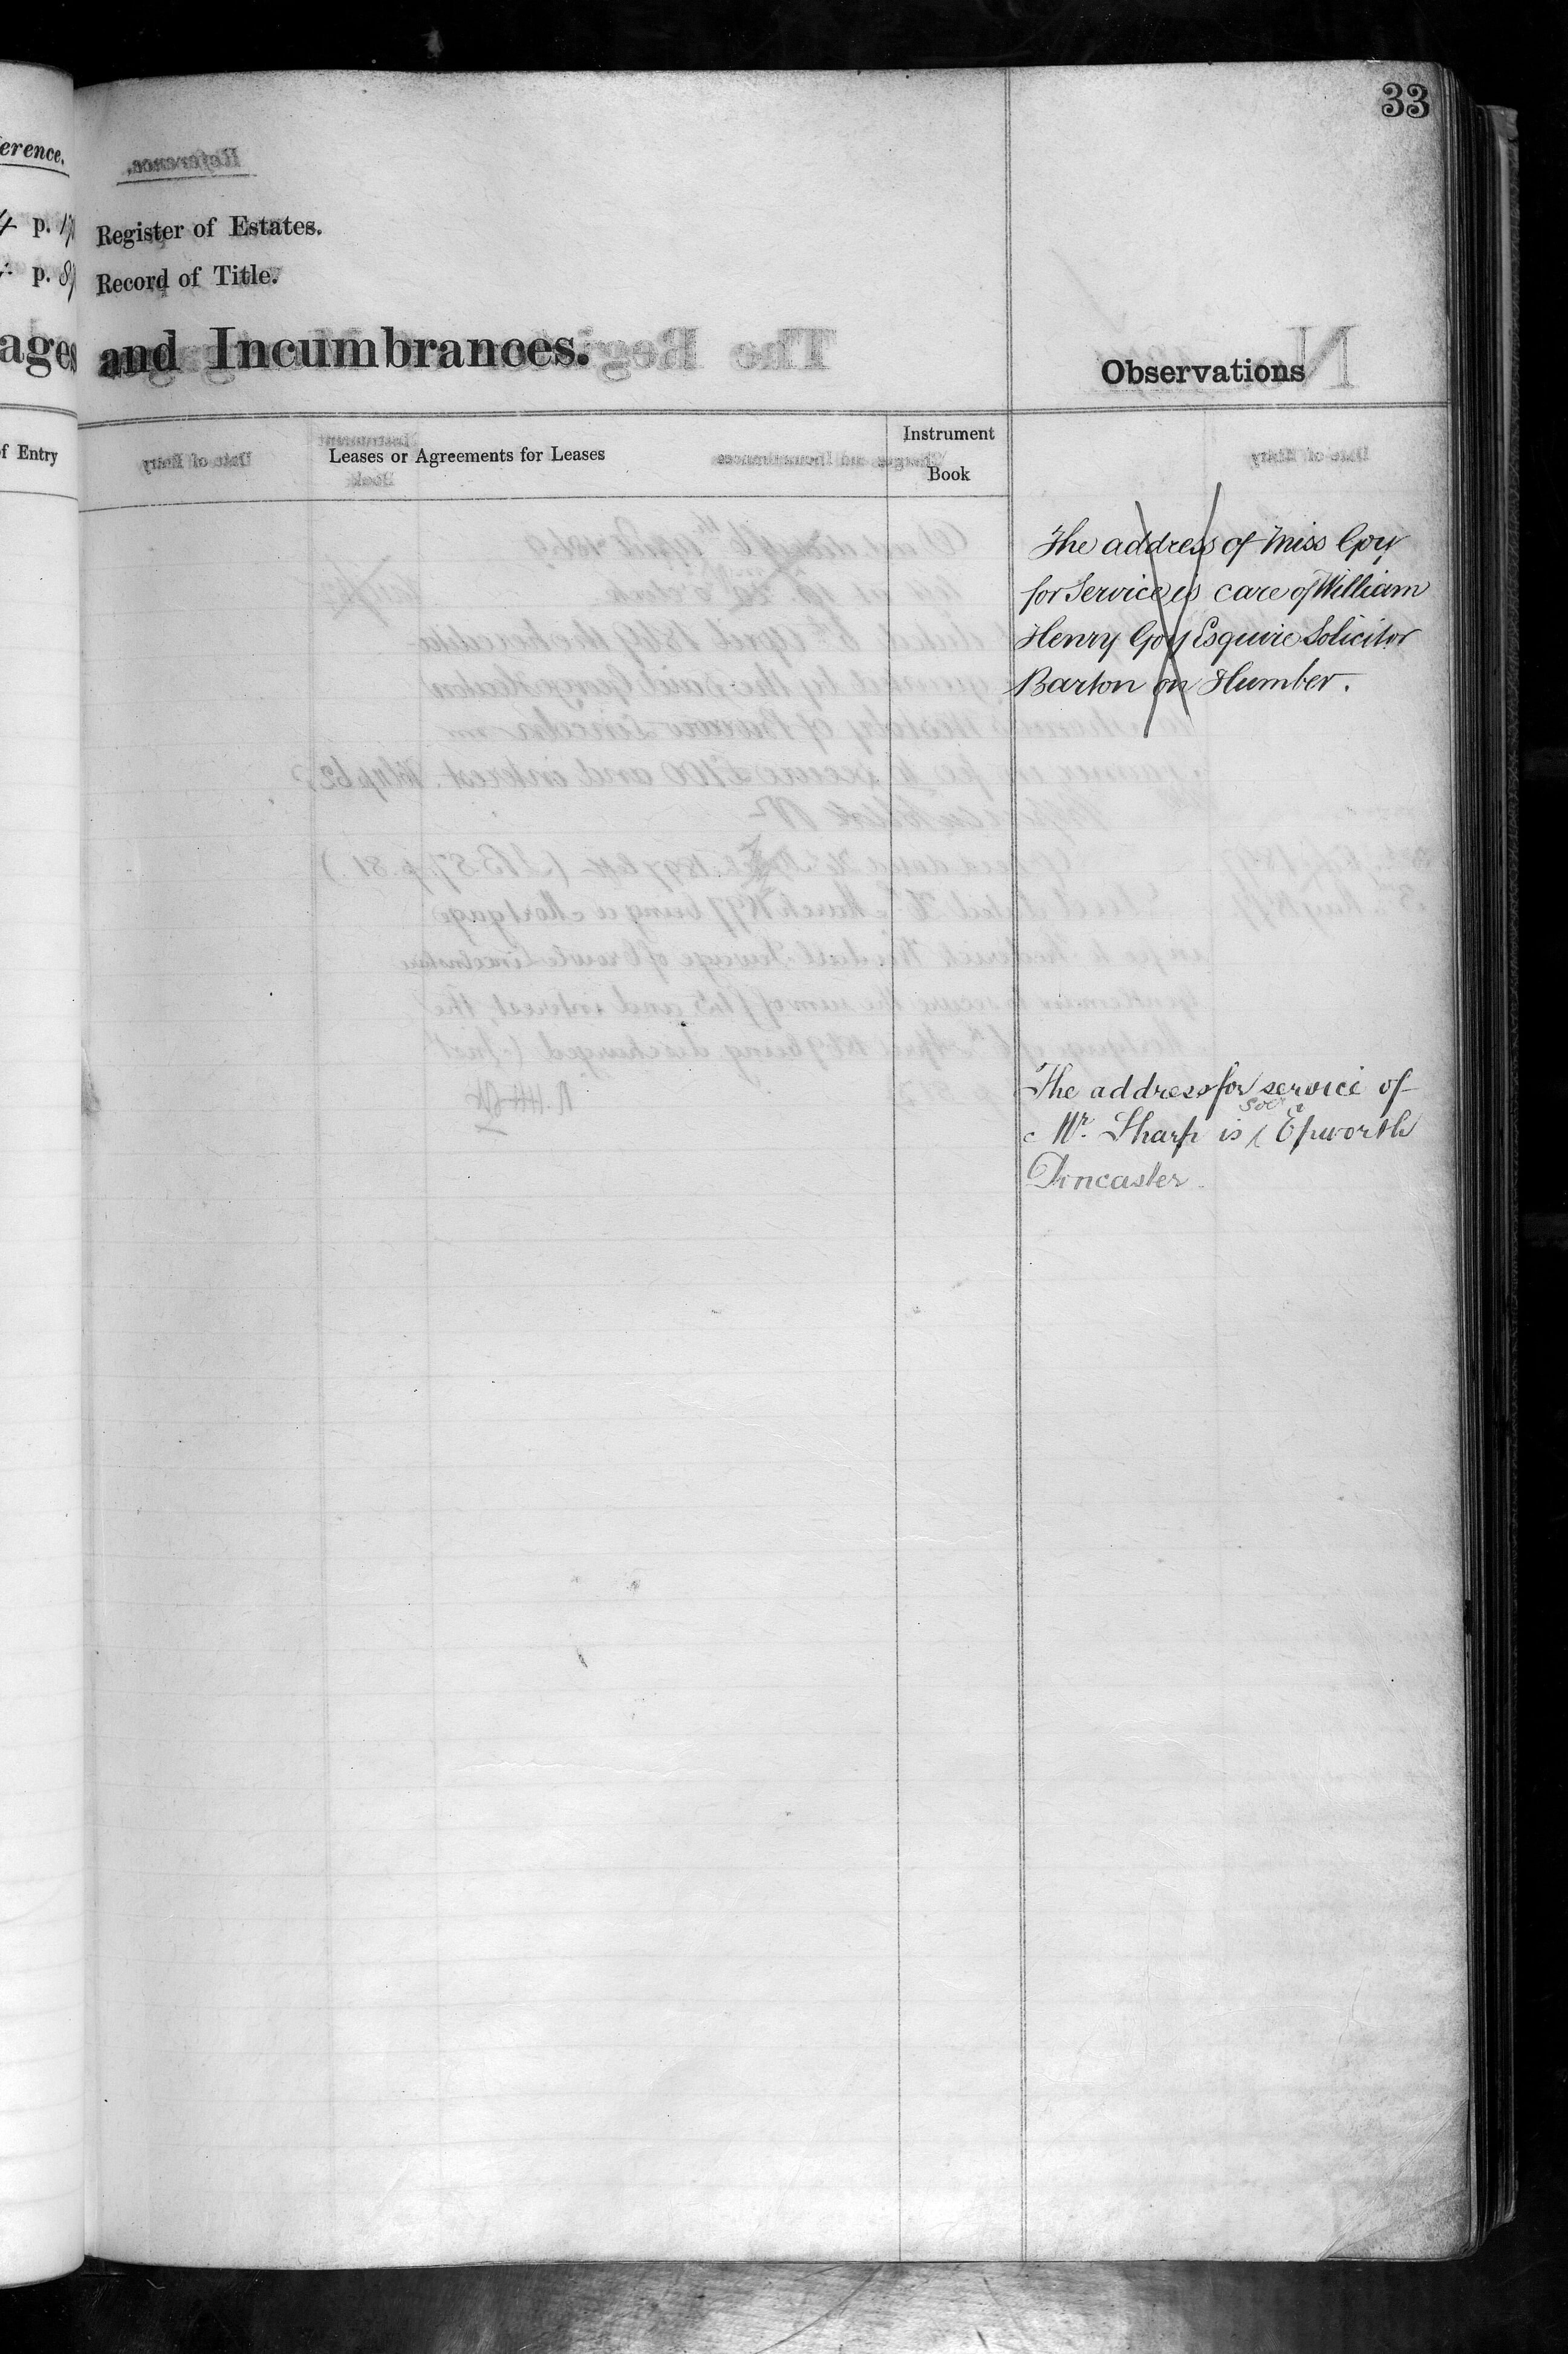 33
erence.
p.
Register of Estates.
p. 8
Record of Title.
ages
and Incumbrances.
Observations
f Entry
Leases or Agreements for Leases
Instrument
Book
The address of Miss Goy
for Service is care of William
Henry Goy Esquire Solicitor
Barton on Humber.
The address for service of
Mr. Sharp is Epworth
Doncaster.